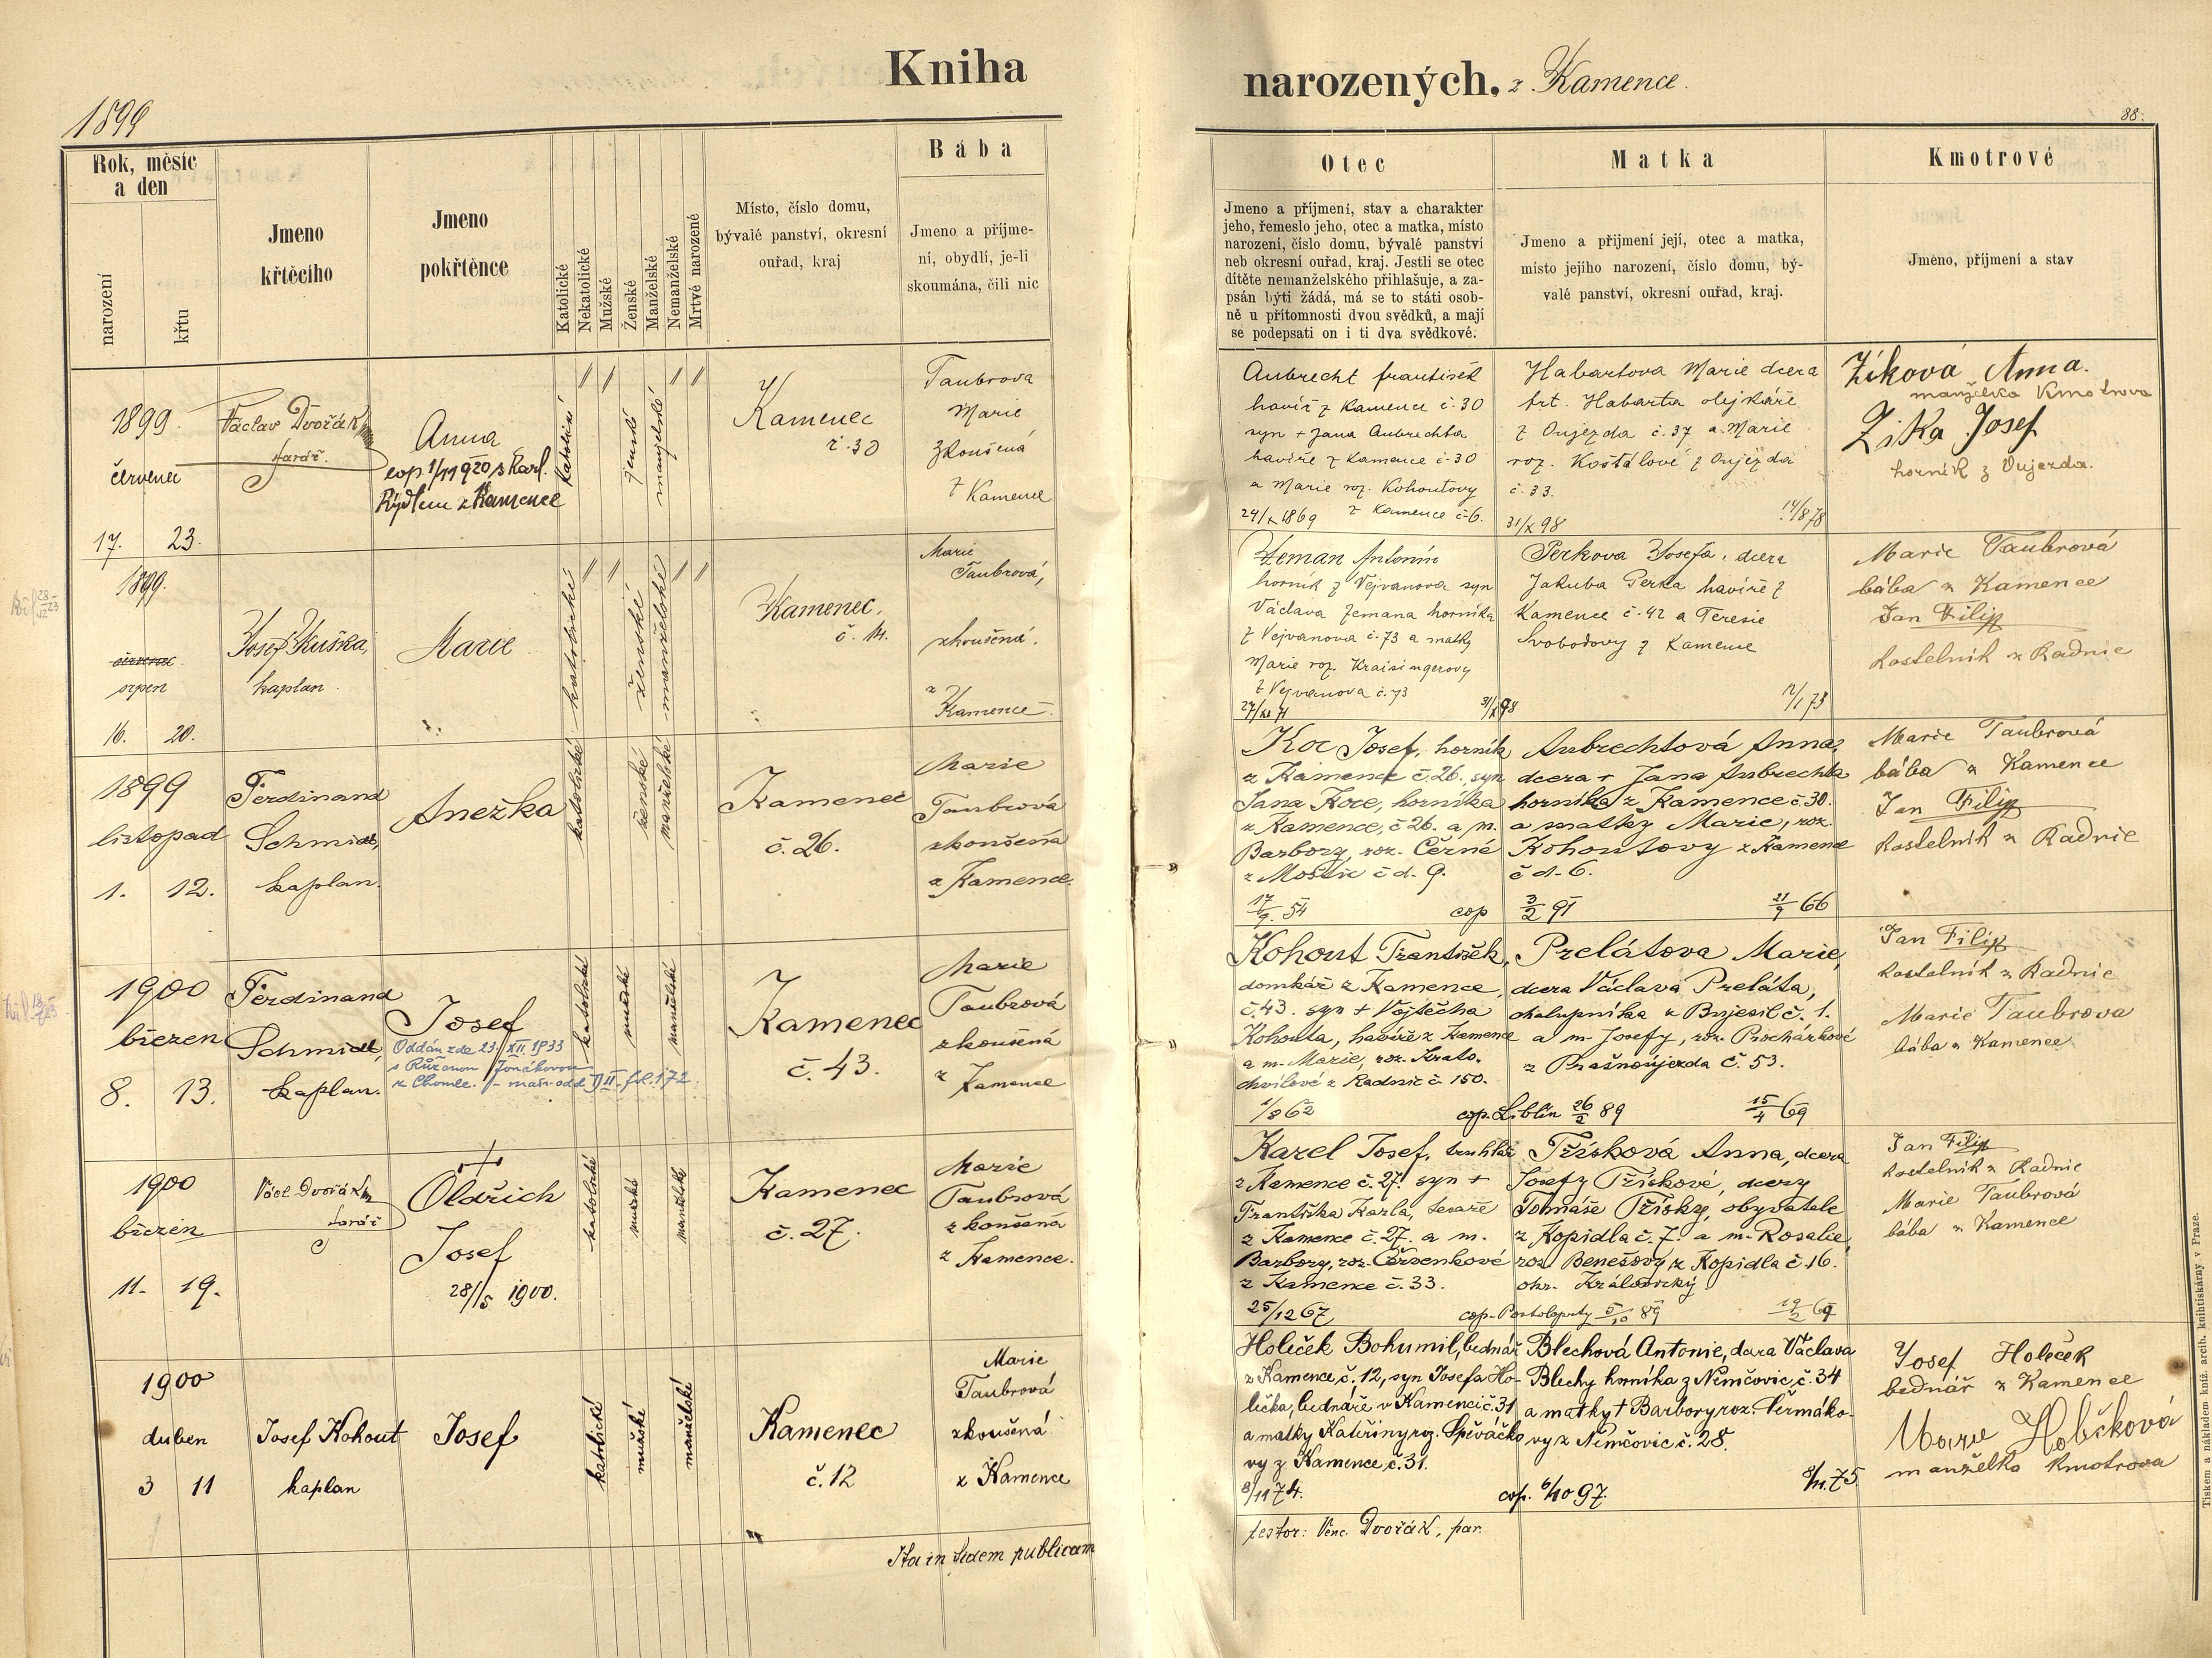 Kniha narozených. z Kamence.
1899
88.
Rok, měsíc
a den
narození
křtu
Jmeno
křtěcího
Jmeno
pokřtěnce
Katolické
Nekatolické
Mužské
Ženské
Manželské
Nemanželské
Mrtvé narozené
Místo, číslo domu,
bývalé panství, okresní
ouřad, kraj
Bába
Jmeno a příjme-
ní, obydlí, je-li
skoumána, čili nic
Otec
Jmeno a příjmení, stav a charakter
jeho, řemeslo jeho, otec a matka, místo
narození, číslo domu, bývalé panství
neb okresní ouřad, kraj. Jestli se otec
dítěte nemanželského přihlašuje, a za-
psán býti žádá, má se to státi osob-
ně u přítomnosti dvou svědků, a mají
se podepsati on i ti dva svědkové.
Matka
Jmeno a přijmení její, otec a matka,
místo jejího narození, číslo domu, bý-
valé panství, okresní ouřad, kraj.
Kmotrové
Jmeno, příjmení a stav
1899.
červenec
17. 23.
Václav Dvořák
farář.
Anna
cop 1/11 920 s Karl.
Rýdlem z Kamence
ženské
manželské
Kamenec
č. 30
Taubrova
Marie
zkoušená
z Kamence
Aubrecht františek
havíř z Kamence č. 30
syn + Jana Aubrechta
havíře z Kamence č. 30
a Marie roz. Kohoutovy
24/X 1869 z Kamence č. 6.
Habartova Marie dcera
frt. Habarta olejkáře
z Oujezda č. 37 a Marie
roz. Košťálové z Oujezda
č. 33.
31/X 98 14/8 78
Zíková Anna.
manželka Kmotrova
Zíka Josef
horník z Oujezda.
1899.
červenec
srpen
16. 20.
Josef Kuška,
kaplan.
Marie
katolické
ženské
manželské
Kamenec,
č. 14.
Marie
Taubrová,
zkoušená.
z
Kamence
Zeman Antonín
horník z Vejvanova syn
Václava Zemana horníka
z Vejvanova č. 73 a matky
Marie roz. Kraisingerovy
z Vejvanova č. 73
27/XI 71 31/X 98
Perkova Josefa, dcera
Jakuba Perka havíře z
Kamence č. 42 a Teresie
Svobodovy z Kamence
12/1 73
Marie Taubrová
bába z Kamence
Jan Filip
kostelník z Radnic
1899
listopad
1. 12.
Ferdinand
Schmidt,
kaplan.
Anežka
katolické
ženské
manželské
Kamenec
č. 26.
Marie
Taubrová
zkoušená
z Kamence.
Koc Josef, horník
z Kamence č. 26. syn
Jana Koce, horníka
z Kamence, č. 26. a m.
Barbory, roz. Černé
z Moštic č d. 9.
17/9. 54 cop
Aubrechtová Anna,
dcera + Jana Aubrechta
horníka z Kamence č. 30.
a matky Marie, roz.
Kohoutovy z Kamence
č d. 6.
3/2 91 21/7 66
Marie Taubrová
bába z Kamence
Jan Filip
kostelník z Radnic
1900
březen
8. 13.
Ferdinand
Schmidt,
kaplan.
Josef
Oddán zde 23/XII. 1933
s Růženou Jonákovou
z Chomle. - matr. odd. VII. fol. 172.
katolické
mužské
manželské
Kamenec
č. 43.
Marie
Taubrová
zkoušená
z
Kamence
Kohout František,
domkář z Kamence,
č. 43. syn + Vojtěcha
Kohouta, havíře z Kamence
a m. Marie, roz. Krato-
chvílové z Radnic č. 150.
1/8 62 cop. Liblín 26/2 89
Prelátova Marie,
dcera Václava Preláta,
chalupníka z Bujesil č. 1.
a m. Josefy, roz. Procházkové
z Prašnoújezda č. 53.
15/4 69
Jan Filip
kostelník z Radnic
Marie Taubrova
bába z Kamence
1900
březen
11. 19.
Václ. Dvořák
farář
Oldřich
Josef
28/5 1900.
katolické
mužské
manželské
Kamenec
č. 27.
Marie
Taubrová
zkoušená
z Kamence.
Karel Josef, truhlář
z Kamence č. 27. syn +
Františka Karla, tesaře
z Kamence č. 27. a m.
Barbory, roz. Červenkové
z Kamence č. 33.
25/12 67 cop. Postoloprty 5/10 89
Tříšková Anna, dcera
Josefy Tříškové, dcery
Tomáše Třísky, obyvatele
z Kopidla č. 7. a m. Rosalie,
roz. Benešovy, z Kopidla č. 16.
okr. Královický
19/2 69
Jan Filip
kostelník z Radnic
Marie Taubrová
bába z Kamence
1900
duben
3 11
Josef Kohout
kaplan
Josef
katolické
mužské
manželské
Kamenec
č. 12
Marie
Taubrová
zkoušená
z Kamence
Holeček Bohumil, bednář
z Kamence, č. 12, syn Josefa Ho-
lečka, bednáře v Kamenci č. 31
a matky Kateřiny roz. Spěváčko
vy z Kamence, č. 31.
8/11 74. cop. 6/10 97.
Blechová Antonie, dcera Václava
Blechy horníka z Němčovic, č. 34
a matky + Barbory roz. Čermáko-
vy z Němčovic č. 28.
8/11. 75.
Josef Holeček
bednář z Kamence
Marie Holečková
manželka kmotrova
Ita in fidem publicam
testor: Venc. Dvořák, par.
Tiskem a nákladem kníž. arcib. knihtiskárny v Praze.